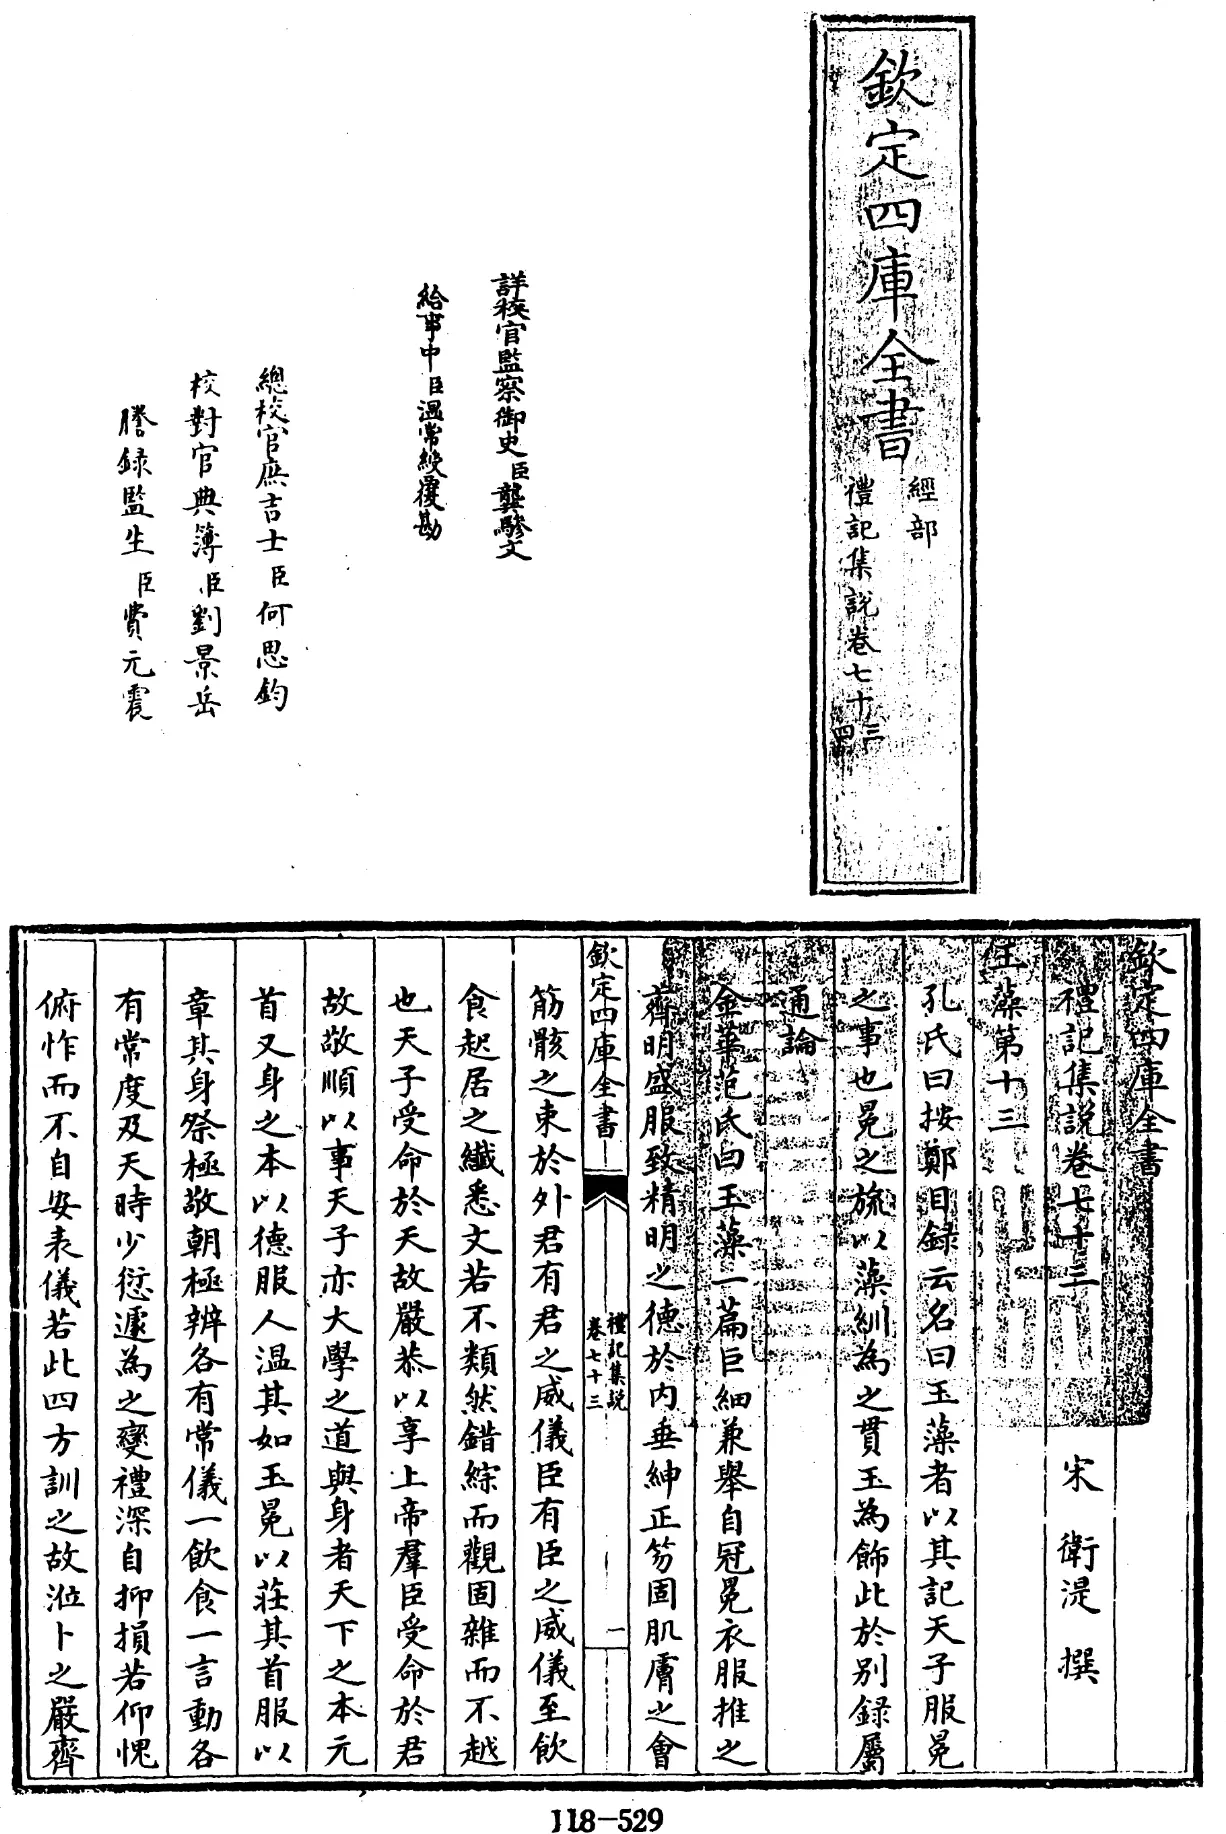 欽定四庫全書
經部
禮記集說卷七十三
四
詳校官監察御史臣龔驂文
給事中臣溫常綬覆勘
總校官庶吉士臣何思鈞
校對官典簿臣劉景岳
謄錄監生臣費元震
欽定四庫全書
禮記集說卷七十三
宋 衛湜 撰
玉藻第十三
孔氏曰按鄭目録云名曰玉藻者以其記天子服冕
之事也冕之旒以藻紃為之貫玉為飾此於别録屬
通論
金華范氏曰玉藻一篇巨細兼舉自冠冕衣服推之
齊明盛服致精明之德於内垂紳正笏固肌膚之會
欽定四庫全書
禮記集說
卷七十三
一
筋骸之束於外君有君之威儀臣有臣之威儀至飲
食起居之纎悉文若不類然錯綜而觀固雜而不越
也天子受命於天故嚴恭以享上帝羣臣受命於君
故敬順以事天子亦大學之道與身者天下之本元
首又身之本以德服人温其如玉冕以莊其首服以
章其身祭極敬朝極辨各有常儀一飲食一言動各
有常度及天時少愆遽為之變禮深自抑損若仰愧
俯怍而不自安表儀若此四方訓之故涖卜之嚴齊
118-529